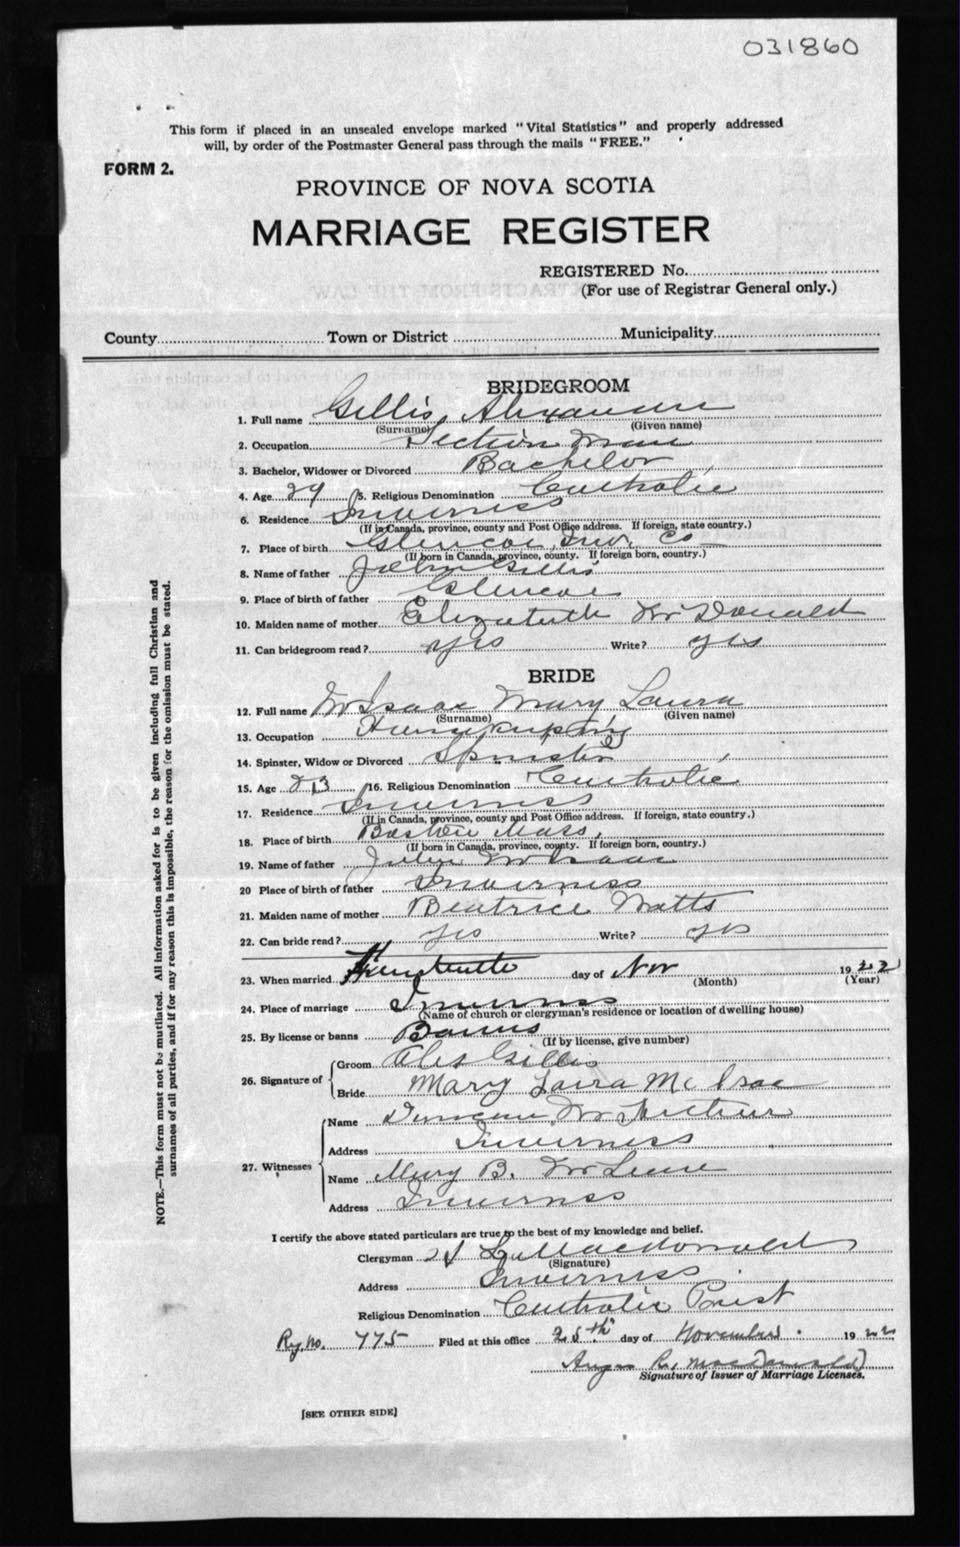 031860
This form if placed in an unsealed envelope marked "Vital Statistics" and properly addressed
will, by order of the Postmaster General pass through the mails "FREE."
FORM 2.
PROVINCE OF NOVA SCOTIA
MARRIAGE REGISTER
REGISTERED No.
(For use of Registrar General only.)
County Town or District Municipality
BRIDEGROOM
1. Full name Gillis, Alexander
(Surname) (Given name)
2. Occupation Section Man
3. Bachelor, Widower or Divorced Bachelor
4. Age 29 5. Religious Denomination Catholic
6. Residence Inverness
(If in Canada, province, county and Post Office address. If foreign, state country.)
7. Place of birth Glencoe, Inv. Co
(If born in Canada, province, county. If foreign born, country.)
8. Name of father John Gillis
9. Place of birth of father Glencoe
10. Maiden name of mother Elizabeth McDonald
11. Can bridegroom read? yes Write? yes
BRIDE
12. Full name McIsaac Mary Laura
(Surname) (Given name)
13. Occupation Housekeeping
14. Spinster, Widow or Divorced Spinster
15. Age 23 16. Religious Denomination Catholic
17. Residence Inverness
(If in Canada, province, county and Post Office address. If foreign, state country.)
18. Place of birth Boston Mass,
(If born in Canada, province, county. If foreign born, country.)
19. Name of father John McIsaac
20 Place of birth of father Inverness
21. Maiden name of mother Beatrice Watts
22. Can bride read? yes Write? yes
23. When married day of Nov 1922
(Month) (Year)
24. Place of marriage Inverness
(Name of church or clergyman's residence or location of dwelling house)
25. By license or banns Banns
(If by license, give number)
26. Signature of Groom Alex Gillis
Bride Mary Laura McIsaac
27. Witnesses Name Duncan McArthur
Address Inverness
Name Mary B. McLean
Address Inverness
I certify the above stated particulars are true to the best of my knowledge and belief.
Clergyman Macdonald
(Signature)
Address Inverness
Religious Denomination Catholic Priest
Reg. No. 775 Filed at this office 25th day of November 1922
Angus R. MacDonald
Signature of Issuer of Marriage Licenses.
[SEE OTHER SIDE]
NOTE.—This form must not be mutilated. All information asked for is to be given including full Christian and
surnames of all parties, and if for any reason this is impossible, the reason for the omission must be stated.